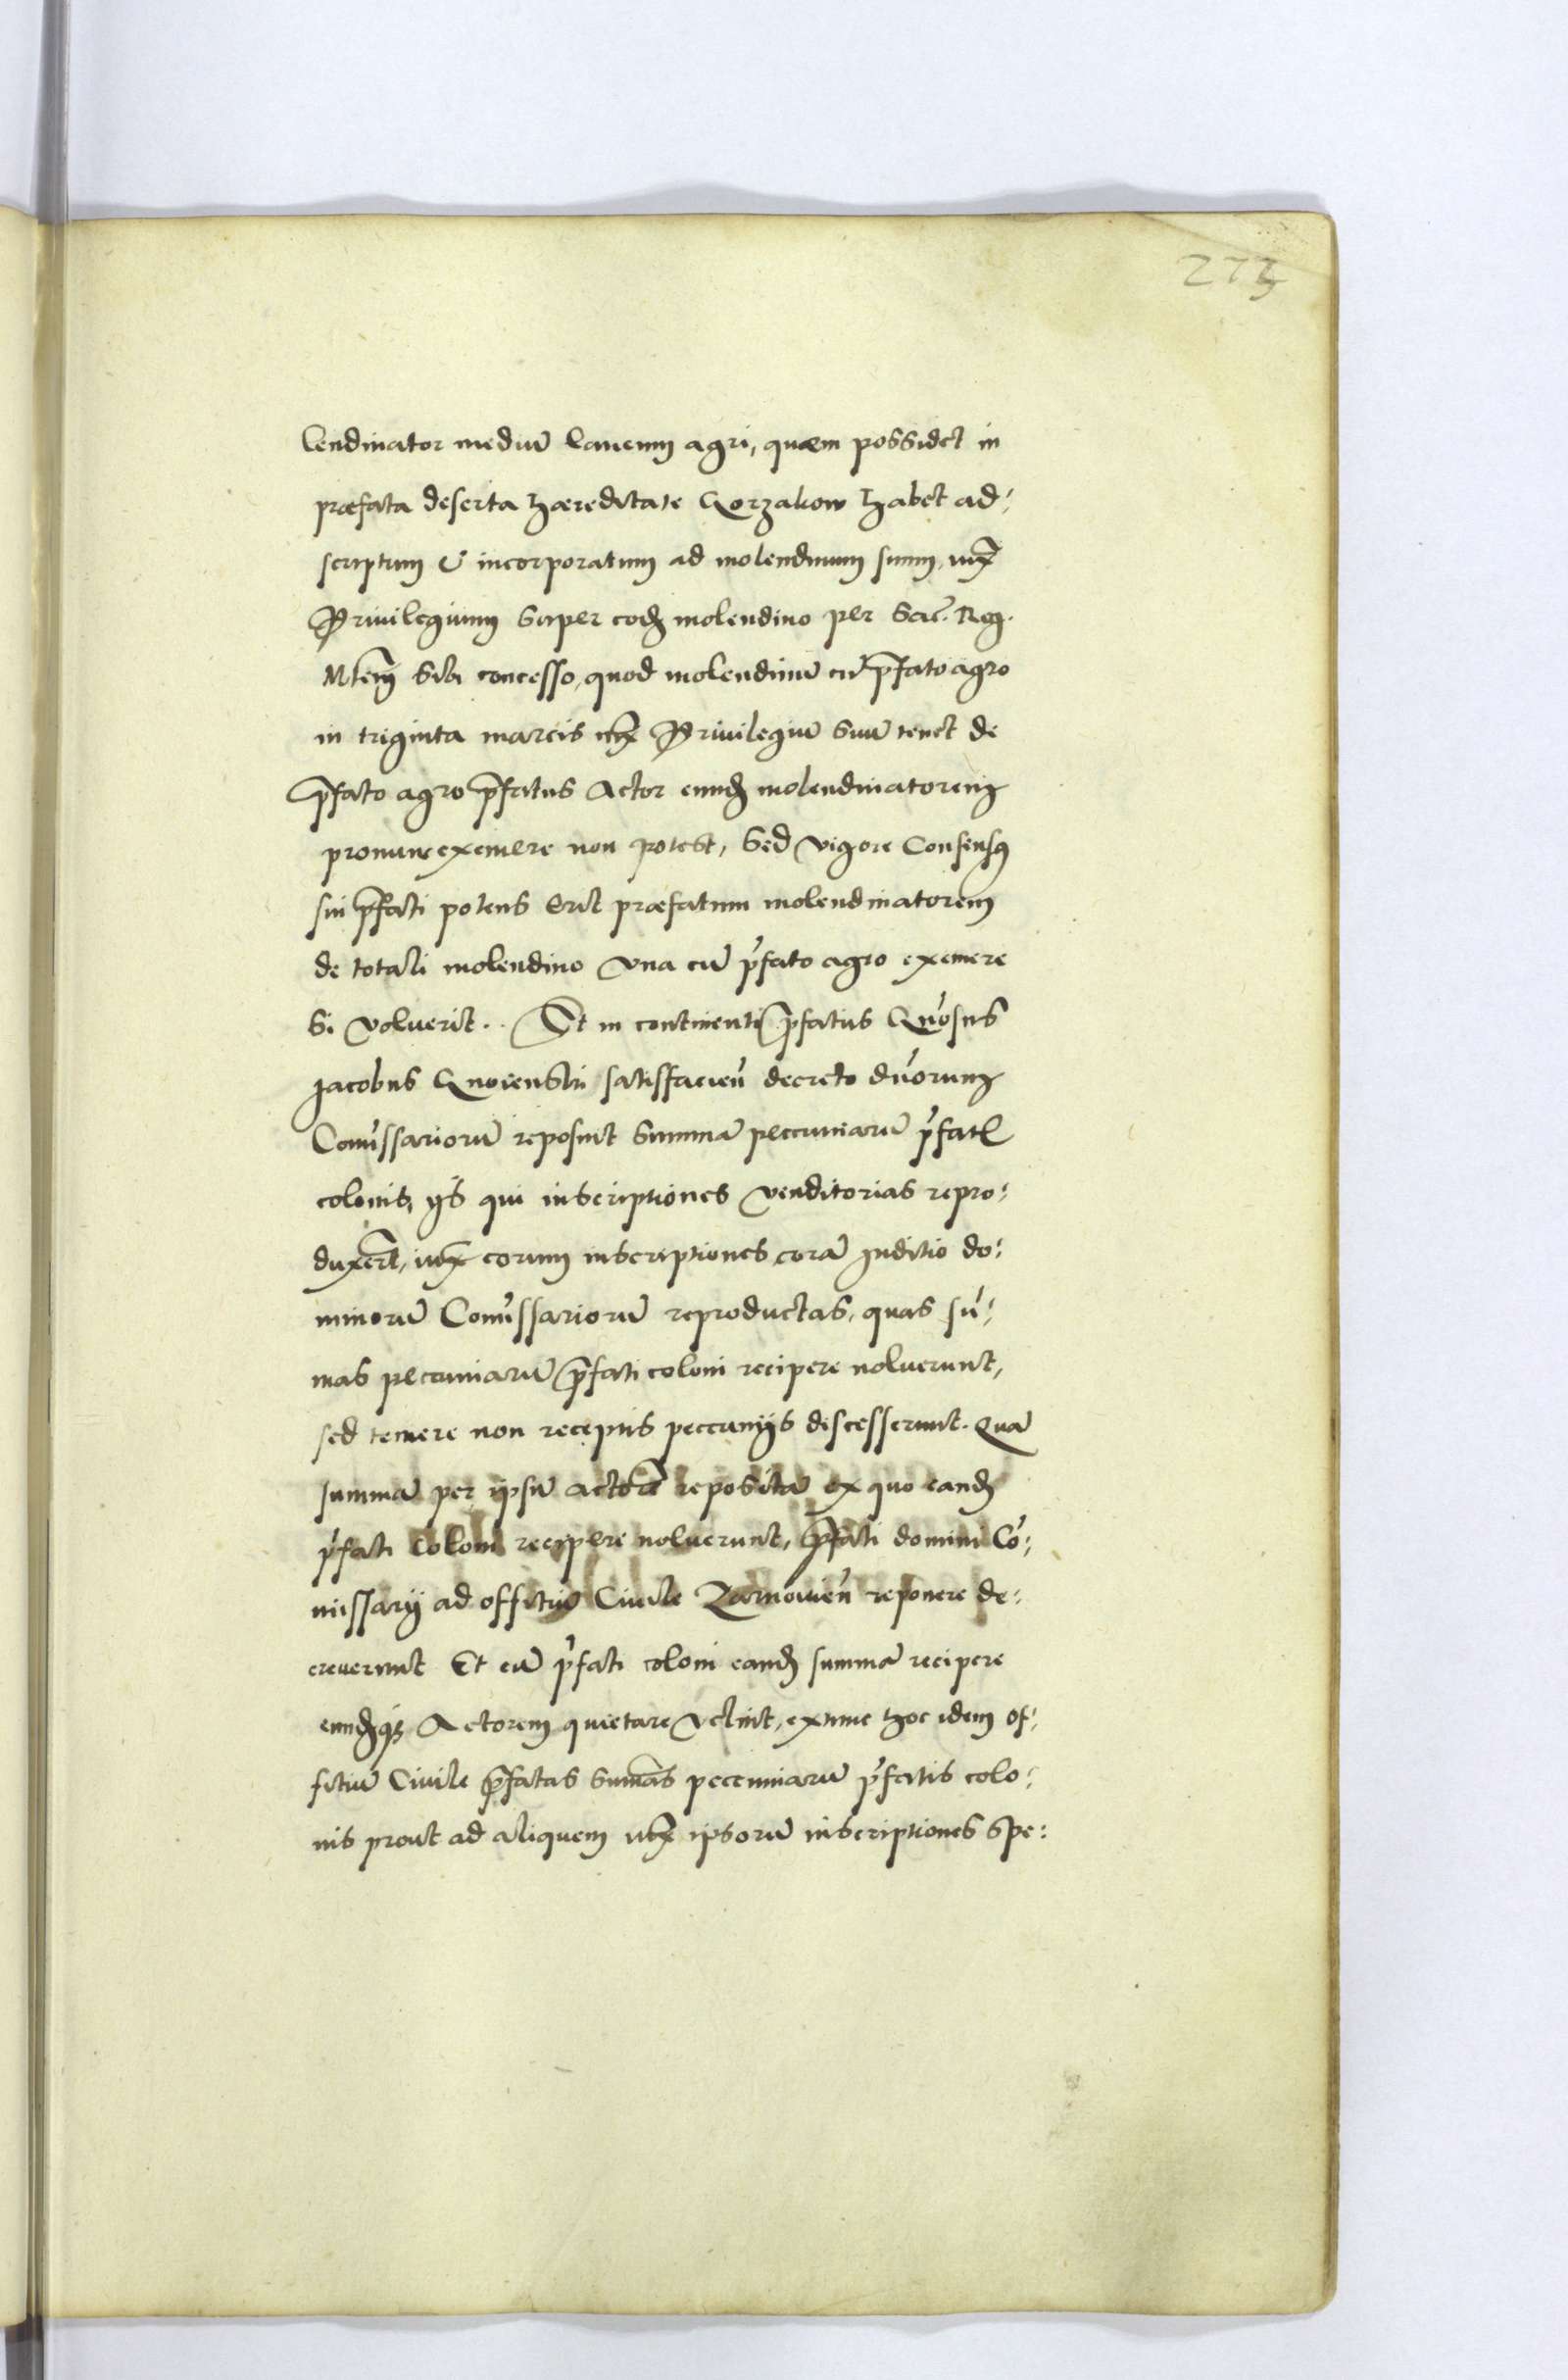 273
lendinator mediū laneum agri, quem possidet in
præfata deserta hæreditate Gorzakow habet ad:
scriptum & incorporatum ad molendinum suum, iux̄
Priuilegium super eodē molendino per Sac. Reg.
Mtēm sibi concesso, quod molendinū cū p̄fato agro
in triginta marcis iux̄ Priuilegiū suū tenet de
p̄fato agro p̄fatus Actor eundē molendinatorem
pronunc eximere non potest, sed vigore Consensus
sui p̄fati potens erit præfatum molendinatorem
de totali molendino vna cū p̄fato agro exemere
si voluerit.. Et in continenti p̄fatus Gn̄osus
Jacobus satisfacien̄ decreto dn̄orum
Com̄issariorū reposuit summā peccuniarū p̄fat
colonis, ijs qui inscriptiones venditorias repro:
duxert̄, iux̄ eorum inscriptiones corā Juditio do:
minorū Com̄issariorū reproductas, quas sū:
mas peccuniarū p̄fati coloni recipere noluerunt,
sed temere non receptis peccunijs descesserunt. Quā
summā per ipsū actorē repositā ex quo eandē
p̄fati coloni recipere noluerunt, p̄fati domini Cō:
missarij ad offitiū Ciuile Zarnouien̄ reponere de:
creuerunt Et cū p̄fati coloni eandē summā recipere
eundēq̃ Actorem quietare velint, extunc hoc idem of:
fitiū Ciuile p̄fatas sumās peccuniarū p̄fatis colo:
nis prout ad aliquem iux̄ ipsorū inscriptiones spe: